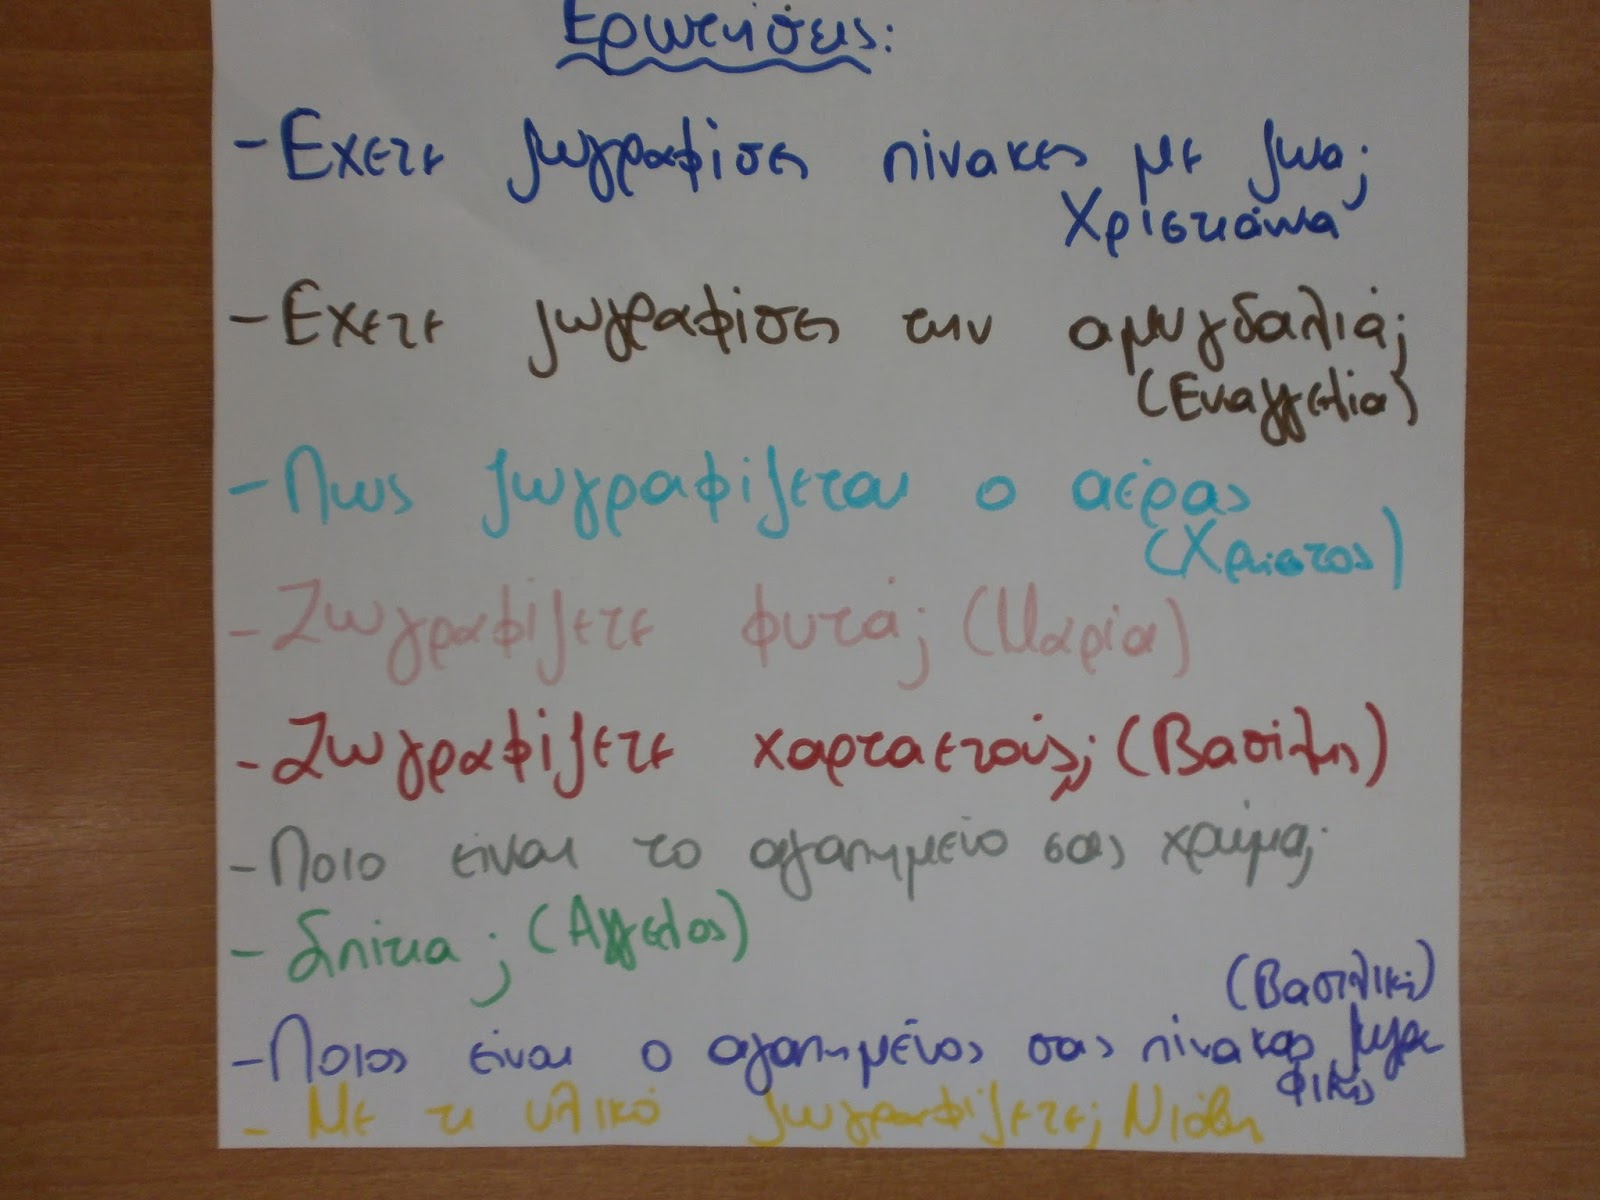 Ερωτήσεις:
- Εχετε ζωγραφίσει πίνακες με ζωα;
Χριστιάννα
- Εχετε ζωγραφίσει την αμυγδαλιά;
(Ευαγγελία)
- Πως ζωγραφίζεται ο αέρας
(Χρήστος)
- Ζωγραφίζετε φυτά; (Μαρία)
- Ζωγραφίζετε χαρταετούς; (Βασίλης)
- Ποιο είναι το αγαπημένο σας χρώμα;
- Σπίτια; (Αγγελος)
(Βασιλική)
- Ποιος είναι ο αγαπημένος σας πίνακας ζωγρα
φικής
- Με τι υλικό ζωγραφίζετε; Νιόβη